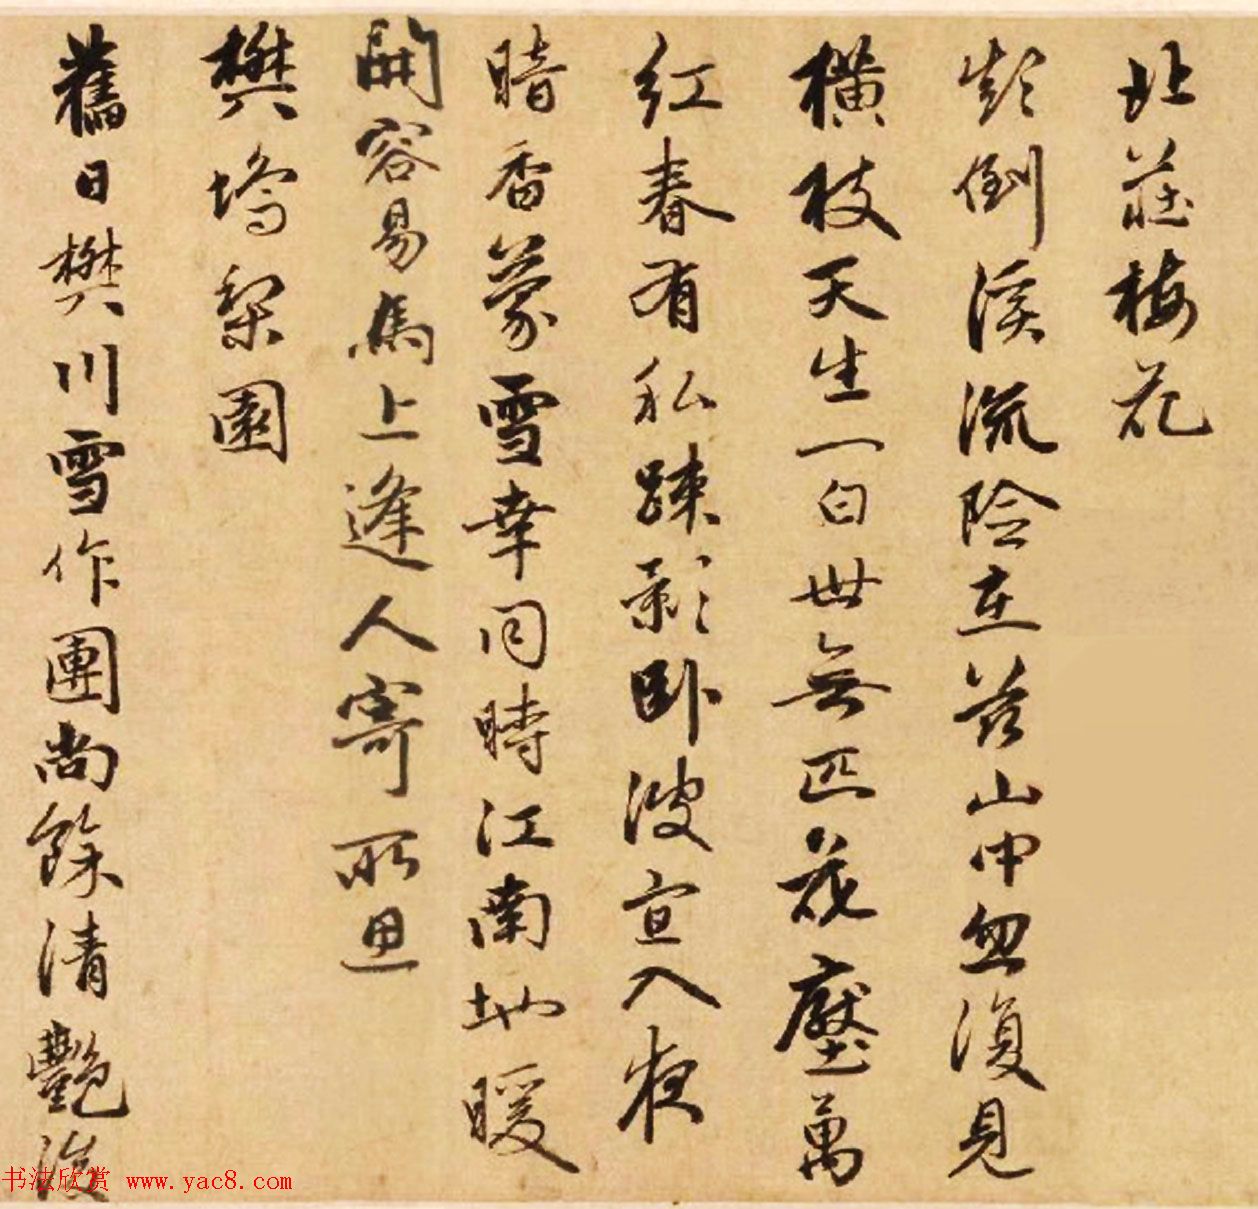 北莊梅花
倒溪流險在茲山中忽復見
橫枝天生一白世無匹花壓萬
紅春有私踈影臥波宜入夜
暗香蒙雪幸同時江南地暖
開容易馬上逢人寄所思
樊塢梨園
舊日樊川雪作團尚餘清艷後
书法欣赏 www.yac8.com